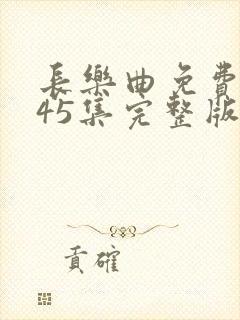 長樂曲免費
45集完整版
貢確